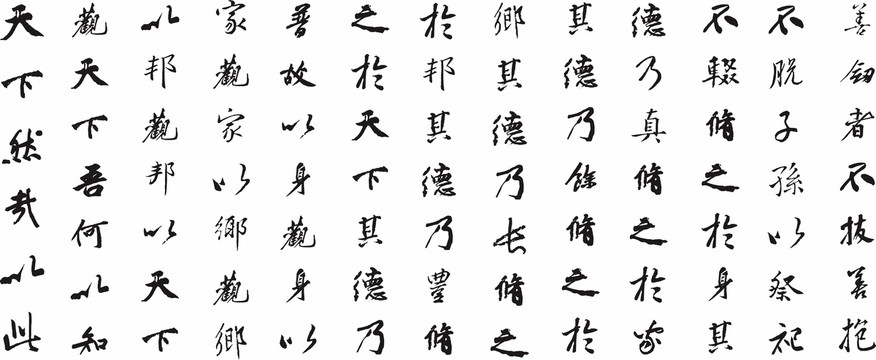 善者不拔善抱
不脫子孫以祭祀
不輟脩之於身其
德乃真脩之於家
其德乃餘脩之於
鄉其德乃長脩之
於邦其德乃豐脩
之於天下其德乃
普故以身觀身以
家觀家以鄉觀鄉
以邦觀邦以天下
觀天下吾何以知
天下然哉以此